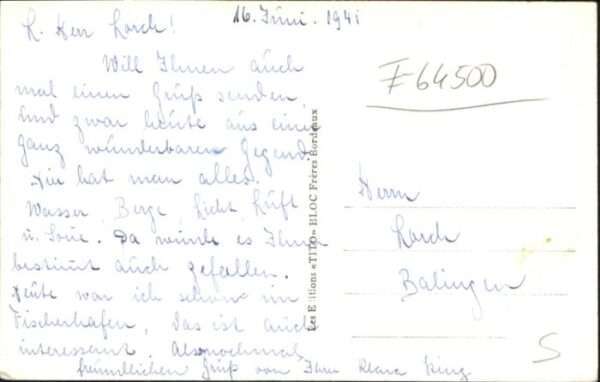 16. Juni. 1941
L. Herr Lorch!
Will Ihnen auch
mal einen Gruß senden,
und zwar heute aus einer
ganz wunderbaren Gegend.
Hier hat man alles.
Wasser, Berge, Licht, Luft
u. Sonne. Da würde es Ihnen
bestimt auch gefallen.
Heute war ich schon im
Fischerhafen, das ist auch
interessant. Alsonochmal
freundlichen Gruß von Ihrer Klara King.
Les Editions «TITO» BLOC Frères Bordeaux
F-64500
Herrn
Lorch
Balingen
S